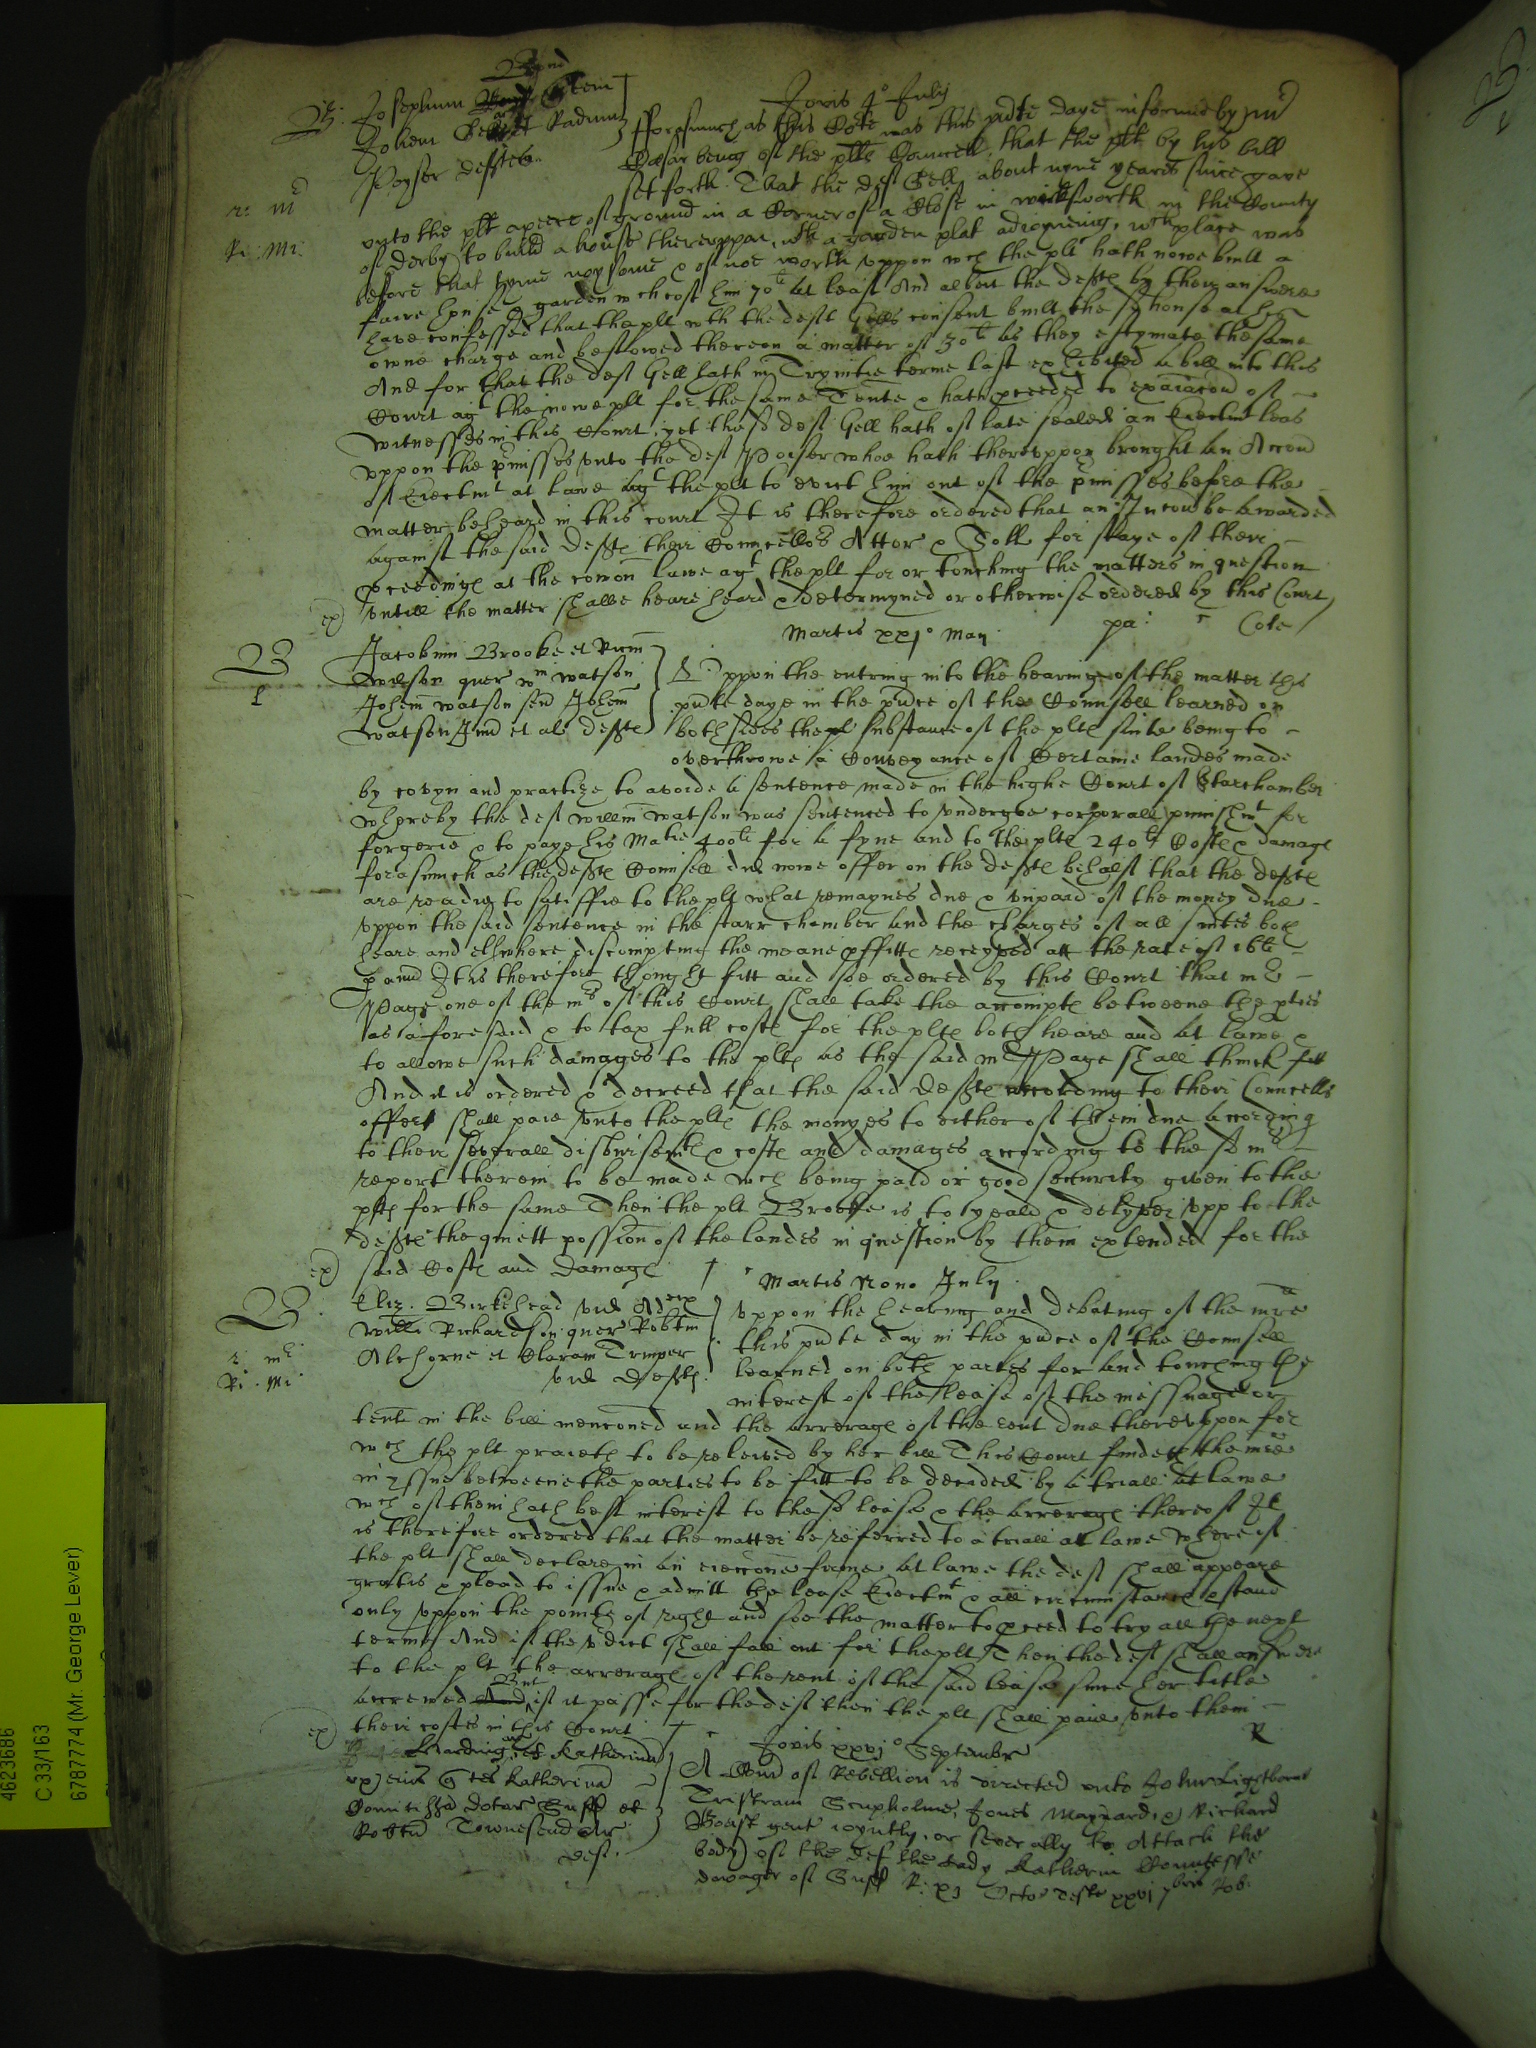 Jovis 4° July
B. Josephum
Johem Gell et Radum
Poyser deftes
r: mr
Ri: Mi:
Fforasmuch as this Cote was this pnte daye informed by mr
Cesar being of the plts Councell, that the plt by his bill
set forth That the deft Gell about nyne yeares since gave
vnto the plt a peece of ground in a Corner of a Close in wirksworth in the County
of Derby to build a house therevppon, wth a garden plat adioyning, wch place was
before that tyme noysome & of noe worth vppon wch the plt hath nowe built a
faire house & garden wch cost him 70li at least And albeit the defts by their answere
have confessed that the plt wth the deft Gells consent built the sd house at his
owne charge and bestowed thereon a matter of 30li as they estymate the same
And for that the deft Gell hath in Trynitie terme last exhibited a bill into this
Court agt the nowe plt for the same Tente & hath pceeded to exaiacon of
witnesses in this Court, yet the sd deft Gell hath of late sealed an Eiectmt leas
vppon the pmisses vnto the deft Poiser whoe hath therevppon brought an Accon
of Eiectmt at lawe agt the plt to evict him out of the pmisses before the
matter be heard in this court It is therefore ordered that an Iniuncon be awarded
against the said defts their Councellors Attor & Soll for staye of their
pceedings at the comon lawe agt the plt for or touching the matters in question
vntill the matter shalbe heare heard & determyned or otherwise ordered by this Court
ex) pa: r Cole
Martis xxjo May
B
Jacobum Brooke et Ricm
wilson quer wm watson
Johem watson sen Johem
watson Jun et als defts
Vppon the entring into the hearing of the matter this
pnte daye in the pnce of the Counsell learned on
both sides the substance of the plts suite being to
overthrowe a Conveyance of Certaine landes made
by covyn and practize to avoide a sentence made in the highe Court of Starchamber
whereby the deft willm watson was sentenced to vndergoe corporall punishmt for
forgerie & to paye his Matie 400li for a fyne and to the plts 240li Costs & damages
forasmuch as the defts Counsell did nowe offer on the defts behalf that the defts
are readie to satisffie to the plts what remaynes due & vnpaid of the money due
vppon the said sentence in the starr chamber and the charges of all suites both
heare and elswhere discompting the meane pffitts receyved att the rate of 16li
p annu It is therefore thought fitt and soe ordered by this Court that mr
Page one of the mrs of this Court shall take the accompts betweene the pties
as aforesaid & to tax full costs for the plts both heare and at lawe &
to allowe such damages to the plts as the said mr Page shall thinck fitt
And it is ordered & decreed that the said defts according to their Councells
offer shall paie vnto the plts the monyes to either of them due according
to their severall disbursemts & costs and damages according to the sd mrs
report therein to be made wch being paid or good security given to the
plts for the same Then the plt Brooke is to yeald & delyver vpp to the
defts the quiett possion of the landes in question by them extended for the
ex) said Costs and damages
Martis nono July
B
r. mr
Ri. Mi
Eliz. Birkehead vid Adcix
willi Richardson quer Robtm
Alchorne et Claram Trupper
vid defts.
Vppon the hearing and debating of the mre
this pnte day in the pnce of the Counsell
learned on both partes for and touching the
interest of the lease of the messuage or
tente in the bill menconed and the arrerages of the rent due therevppon for
wch the plt praieth to be releived by her bill This Court findeth the mre
in yssue betweene the parties to be fitt to be decided by a triall at lawe
wch of them hath best interest to the sd lease & the arrerages thereof It
is therefore ordered that the matter be referred to a triall att lawe wherein
the plt shall declare in an eieccone firme at lawe the deft shall appeare
gratis & plead to issue & admitt the lease Eiectmt & all circumstances & stand
only vppon the pointe of right and soe the matter to pceed to tryall the next
terme And if the vdict shall fall out for the plt Then the deft shall answere
to the plt the arrerages of the rent of the said lease since her title
accrewed But if it passe for the deft then the plt shall paie vnto them
ex) their costs in this Court
R
Jovis xxvjo September
Harding et Katherina
vx eius quer Katherina
Comitissa dotar Suff et
Robtu Townesend Ar
deft.
A Comd of Rebellion is directed vnto John Lightborne
Tristram Scupholme, Jones Maynard, & Richard
gent ioyntly or severally to Attach the
body of the def the Lady Katherin Countesse
dowager of Suff R: xj Octor Teste xxvj 7bris
4623686
C 33/163
6787774 (Mr. George Lever)